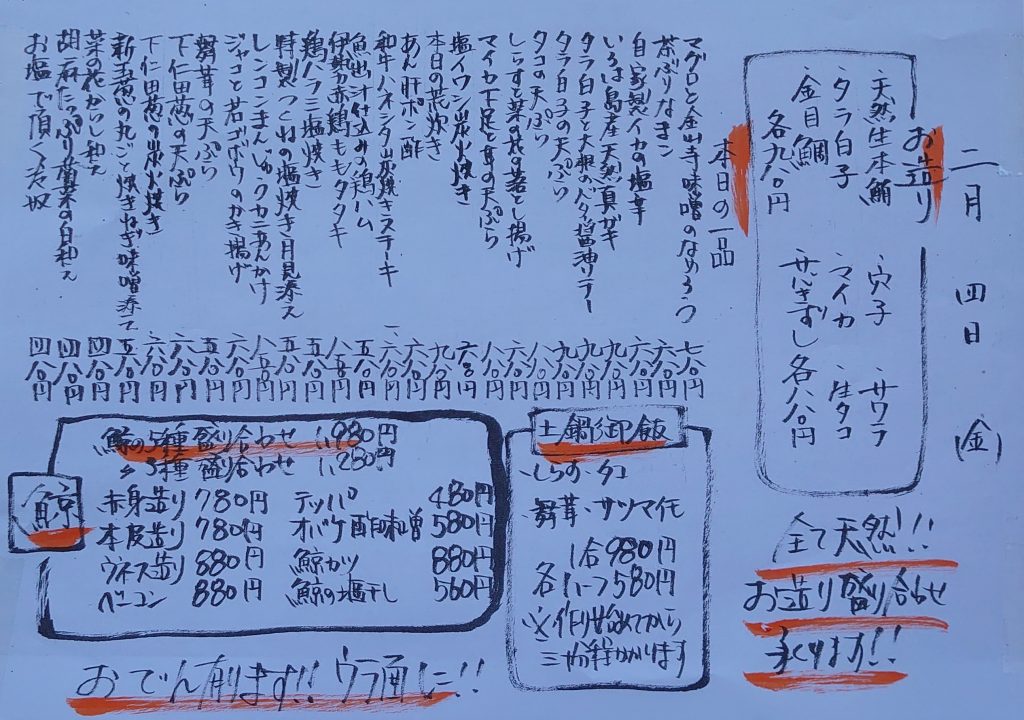 二月 四日 (金)
お造り
・天然生本鮪 ・穴子 ・サワラ
・タラ白子 ・マイカ ・生タコ
・金目鯛
各九八〇円 各八八〇円
全て天然!!
お造り盛り合わせ
承ります!!
本日の一品
マグロと金山寺味噌のなめろう 七八〇円
茶ぶりなまこ 六八〇円
自家製イカの塩辛 六八〇円
いろは島産天然真ガキ 九八〇円
タラ白子と大根のバタ醤油ソテー 九八〇円
タラ白子の天ぷら 九八〇円
タコの天ぷら 八八〇円
しらすと菜の花の落とし揚げ 六八〇円
マイカ下足と舞茸の天ぷら 八八〇円
塩イワシ炭火焼き 六八〇円
本日の荒炊き 九八〇円
あん肝ポン酢 六八〇円
和牛ハネシタ炭焼きステーキ 一、六八〇円
魚出汁仕込みの鶏ハム 五八〇円
伊勢赤鶏ももタタキ 八五〇円
鶏ハラミ塩焼き 五八〇円
特製つくねの塩焼き月見添え
レンコンまんじゅうカニあんかけ 八五〇円
ジャコと若ゴボウのかき揚げ 六八〇円
舞茸の天ぷら 五八〇円
下仁田葱の天ぷら 六八〇円
下仁田葱の炭火焼き 六八〇円
新玉葱の丸ごと焼きねぎ味噌添え 五八〇円
菜の花からし和え 四八〇円
胡麻たっぷり菊菜の白和え 四八〇円
お塩で頂く冷奴 四八〇円
土鍋御飯
・しらす ・タコ
・舞茸 ・サツマイモ
各 1合 980円
ハーフ 580円
※作り始めてから
三十分程かかります
鯨
鯨の5種盛り合わせ 1,980円
〃 3種盛り合わせ 1,280円
赤身造り 780円 テッパ 480円
本皮造り 780円 オバケ酢味噌 580円
ウネス造り 880円 鯨カツ 880円
ベーコン 880円 鯨の塩干し 560円
おでん有ります!! ウラ面に!!